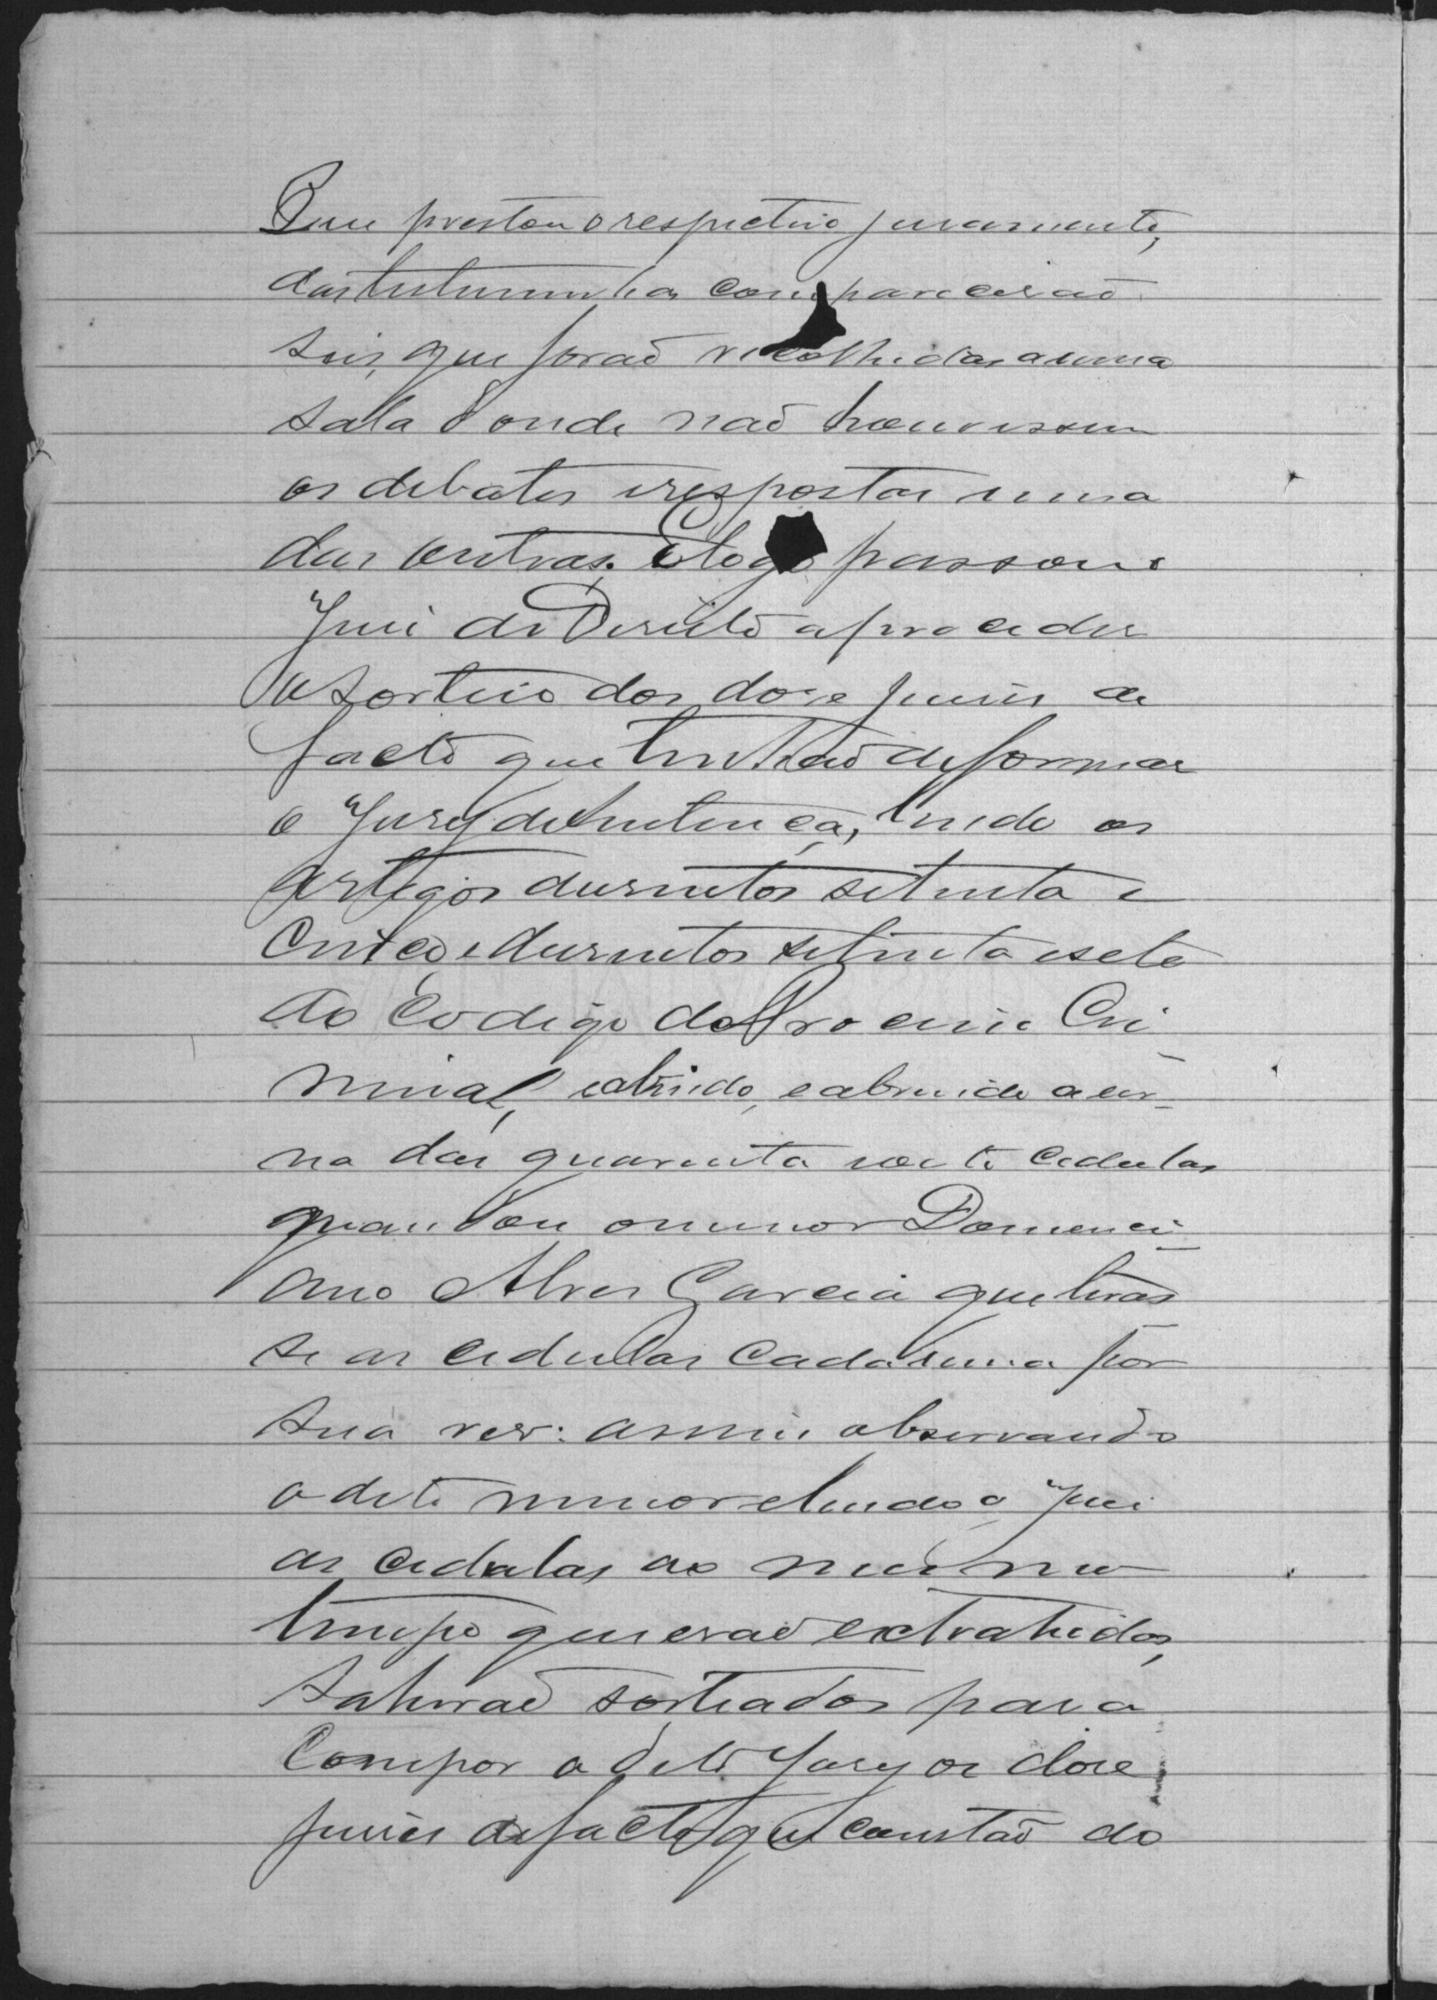 Que prestou o respectivo juramento,
das testemunhas comparecerão
seis, que forão recolhidas a uma
sala donde não houvissem
os debates e respostas uma
das outras. E logo passou o
Juiz de Direito a proceder
o sorteio dos doze juizes de
facto que tinhão de formar
o Jury de sentença, lendo os
artigos dusentos setenta e
cinco e dusentos setenta e sete
do Codigo do Processo Cri-
minal, e abrindo a ur-
na das quarenta e oito cedulas
mandou o menor Domenci-
ano Alves Garcia que tiras-
se as cedulas cada uma por
sua vez: assim observando
o dito menor e lendo o Juiz
as cedulas ao mesmo
tempo que erão extrahidos,
sahirão sorteados para
compor o dito Jury os doze
juizes de facto que constão do